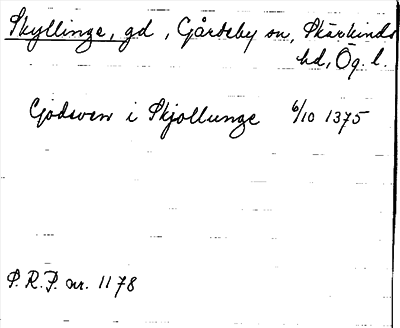 Skyllinge, gd, Gårdeby sn, Skärkinds
hd, Ög. l.
Godsven i Skjollunge 6/10 1375
P.R.P. nr. 1178